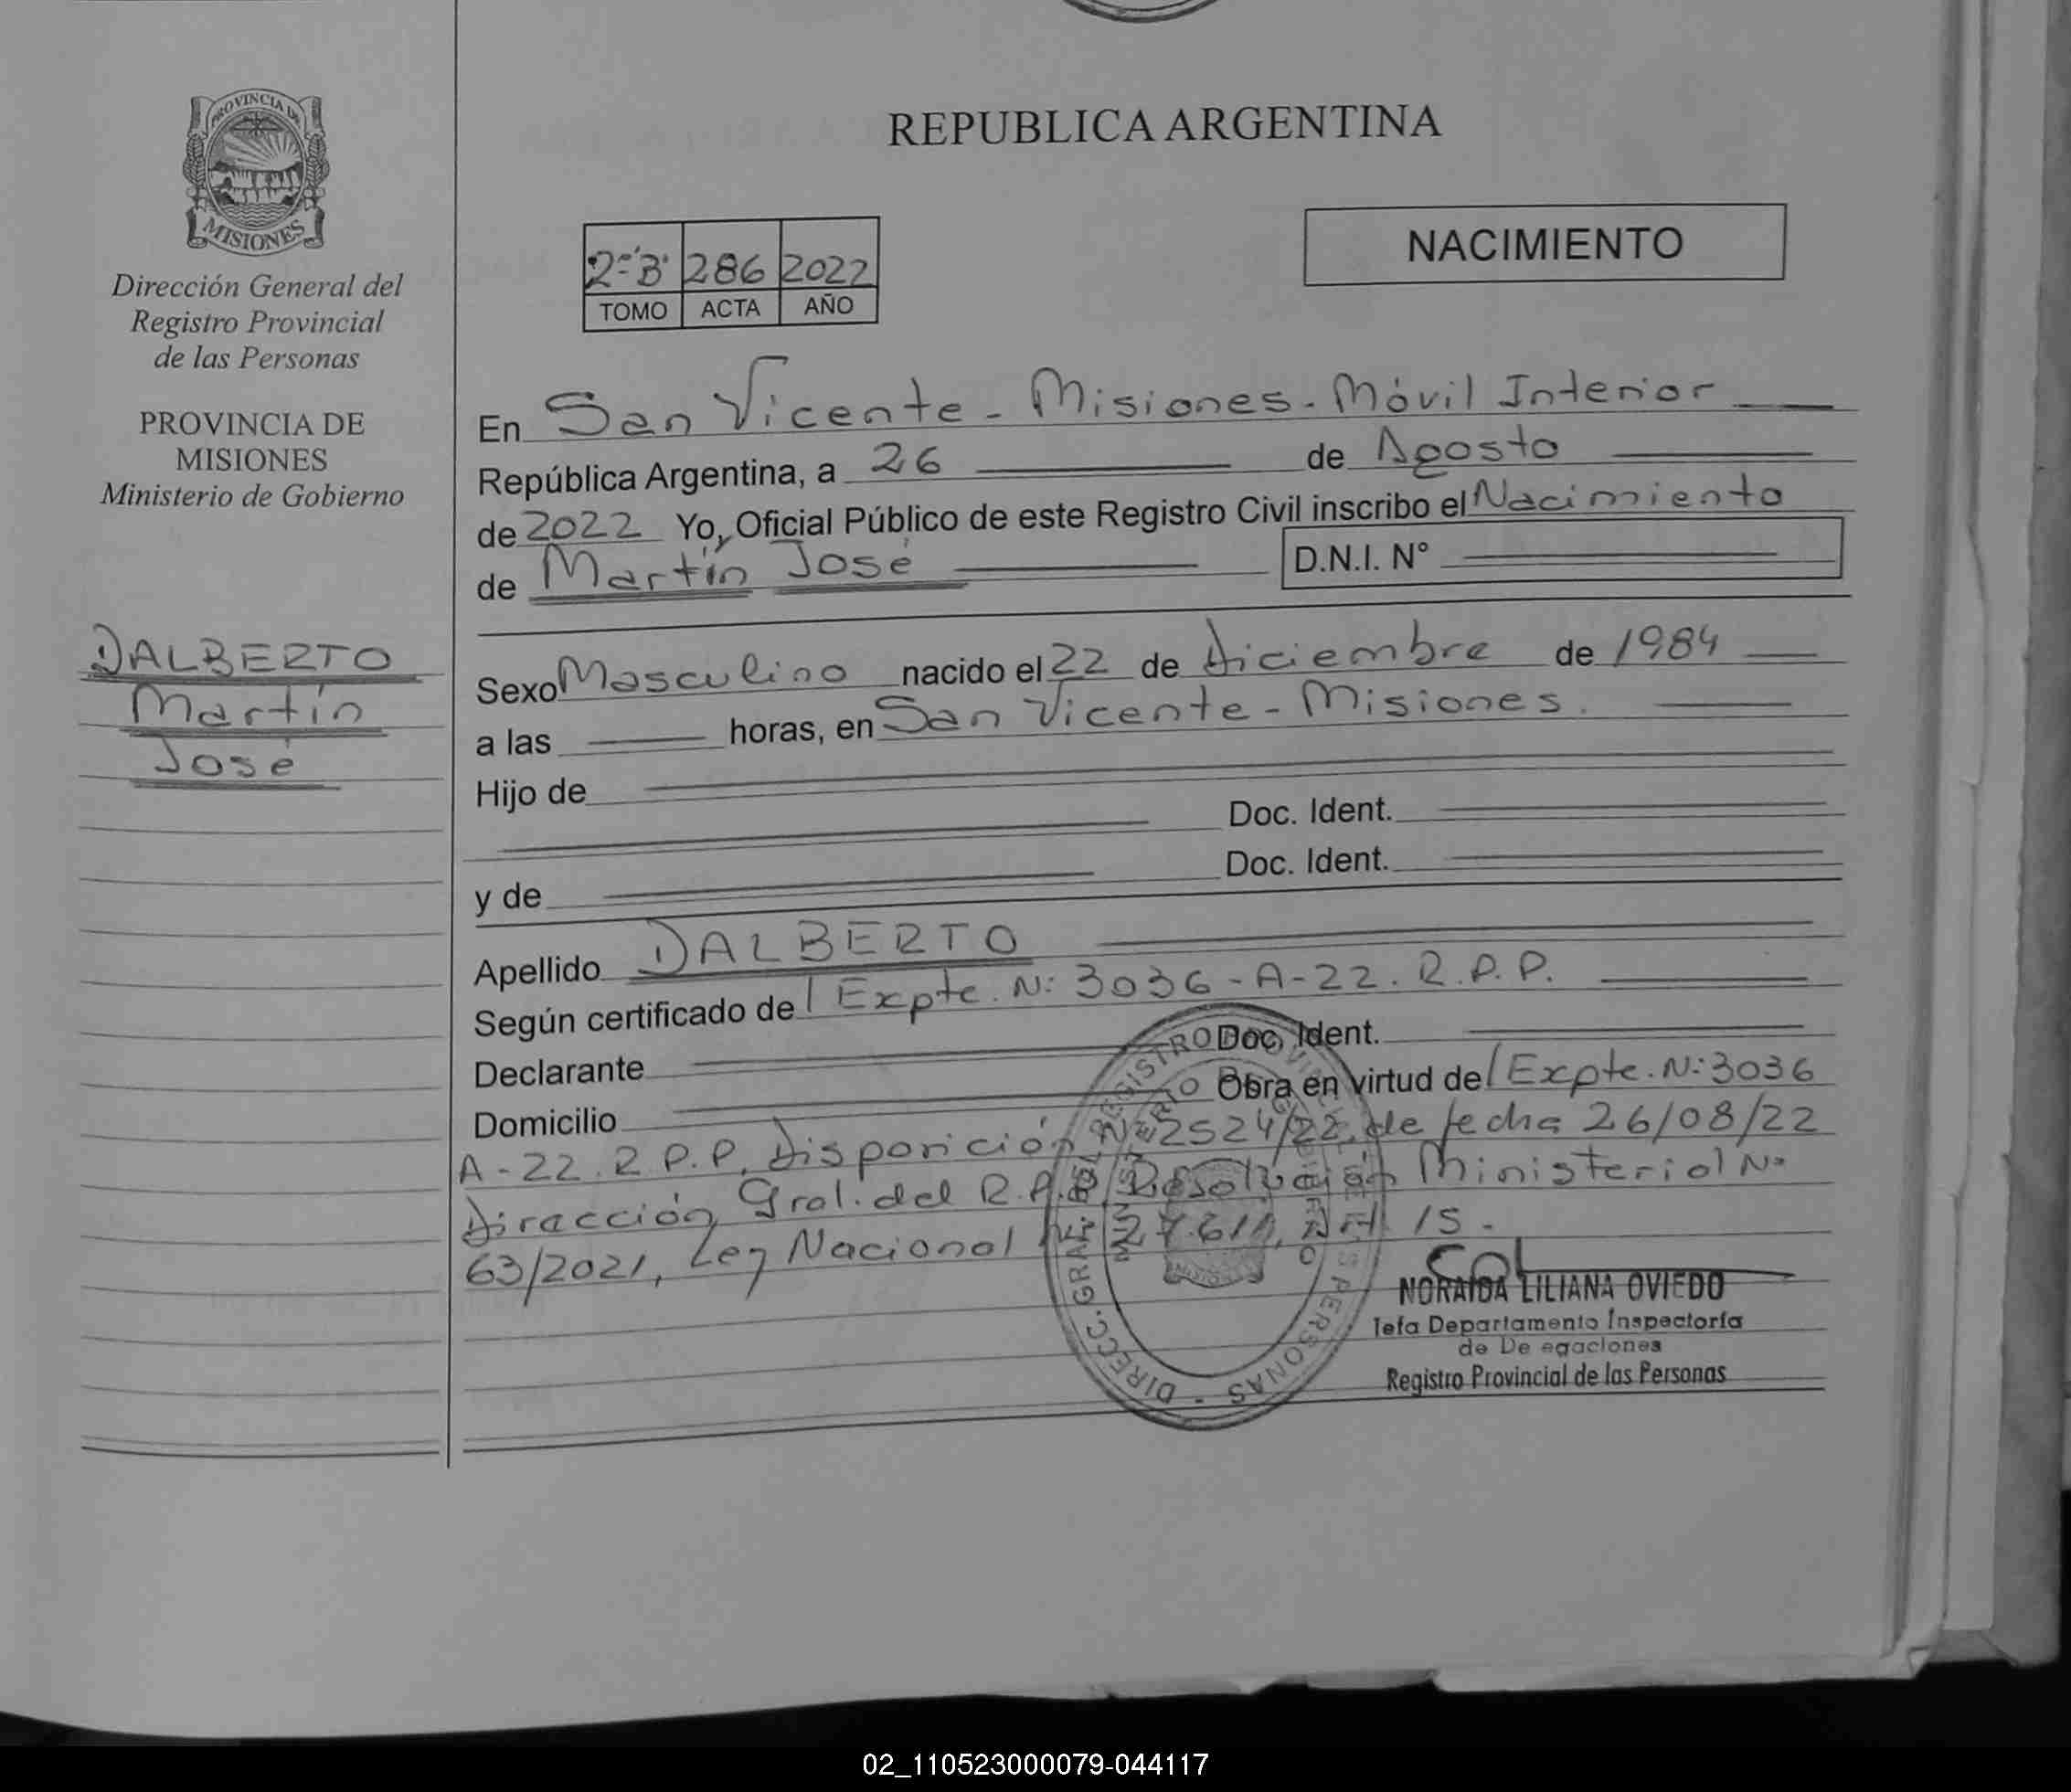 PROVINCIA DE
MISIONES
Dirección General del
Registro Provincial
de las Personas
PROVINCIA DE
MISIONES
Ministerio de Gobierno
DALBERTO
Martín
José
REPUBLICA ARGENTINA
2-"B" 286 2022
TOMO ACTA AÑO
NACIMIENTO
En San Vicente - Misiones - Móvil Interior
República Argentina, a 26 de Agosto
de 2022 Yo, Oficial Público de este Registro Civil inscribo el Nacimiento
de Martín José D.N.I. N°
Sexo Masculino nacido el 22 de diciembre de 1984
a las horas, en San Vicente - Misiones.
Hijo de
Doc. Ident.
y de Doc. Ident.
Apellido DALBERTO
Según certificado de l Expte. N: 3036 - A - 22. R.P.P.
Declarante Doc. Ident.
Domicilio Obra en virtud de l Expte. N: 3036
A - 22. R.P.P. disposición N: 2524/22, de fecha 26/08/22
dirección Gral. del R.P.P., Resolución Ministerial N:
63/2021, Ley Nacional N: 27.611, Art. 15.
NORAIDA LILIANA OVIEDO
Jefa Departamento Inspectoría
de De egaciones
Registro Provincial de las Personas
DIRECC. GRAL. DEL REGISTRO PROVINCIAL DE LAS PERSONAS
02_110523000079-044117